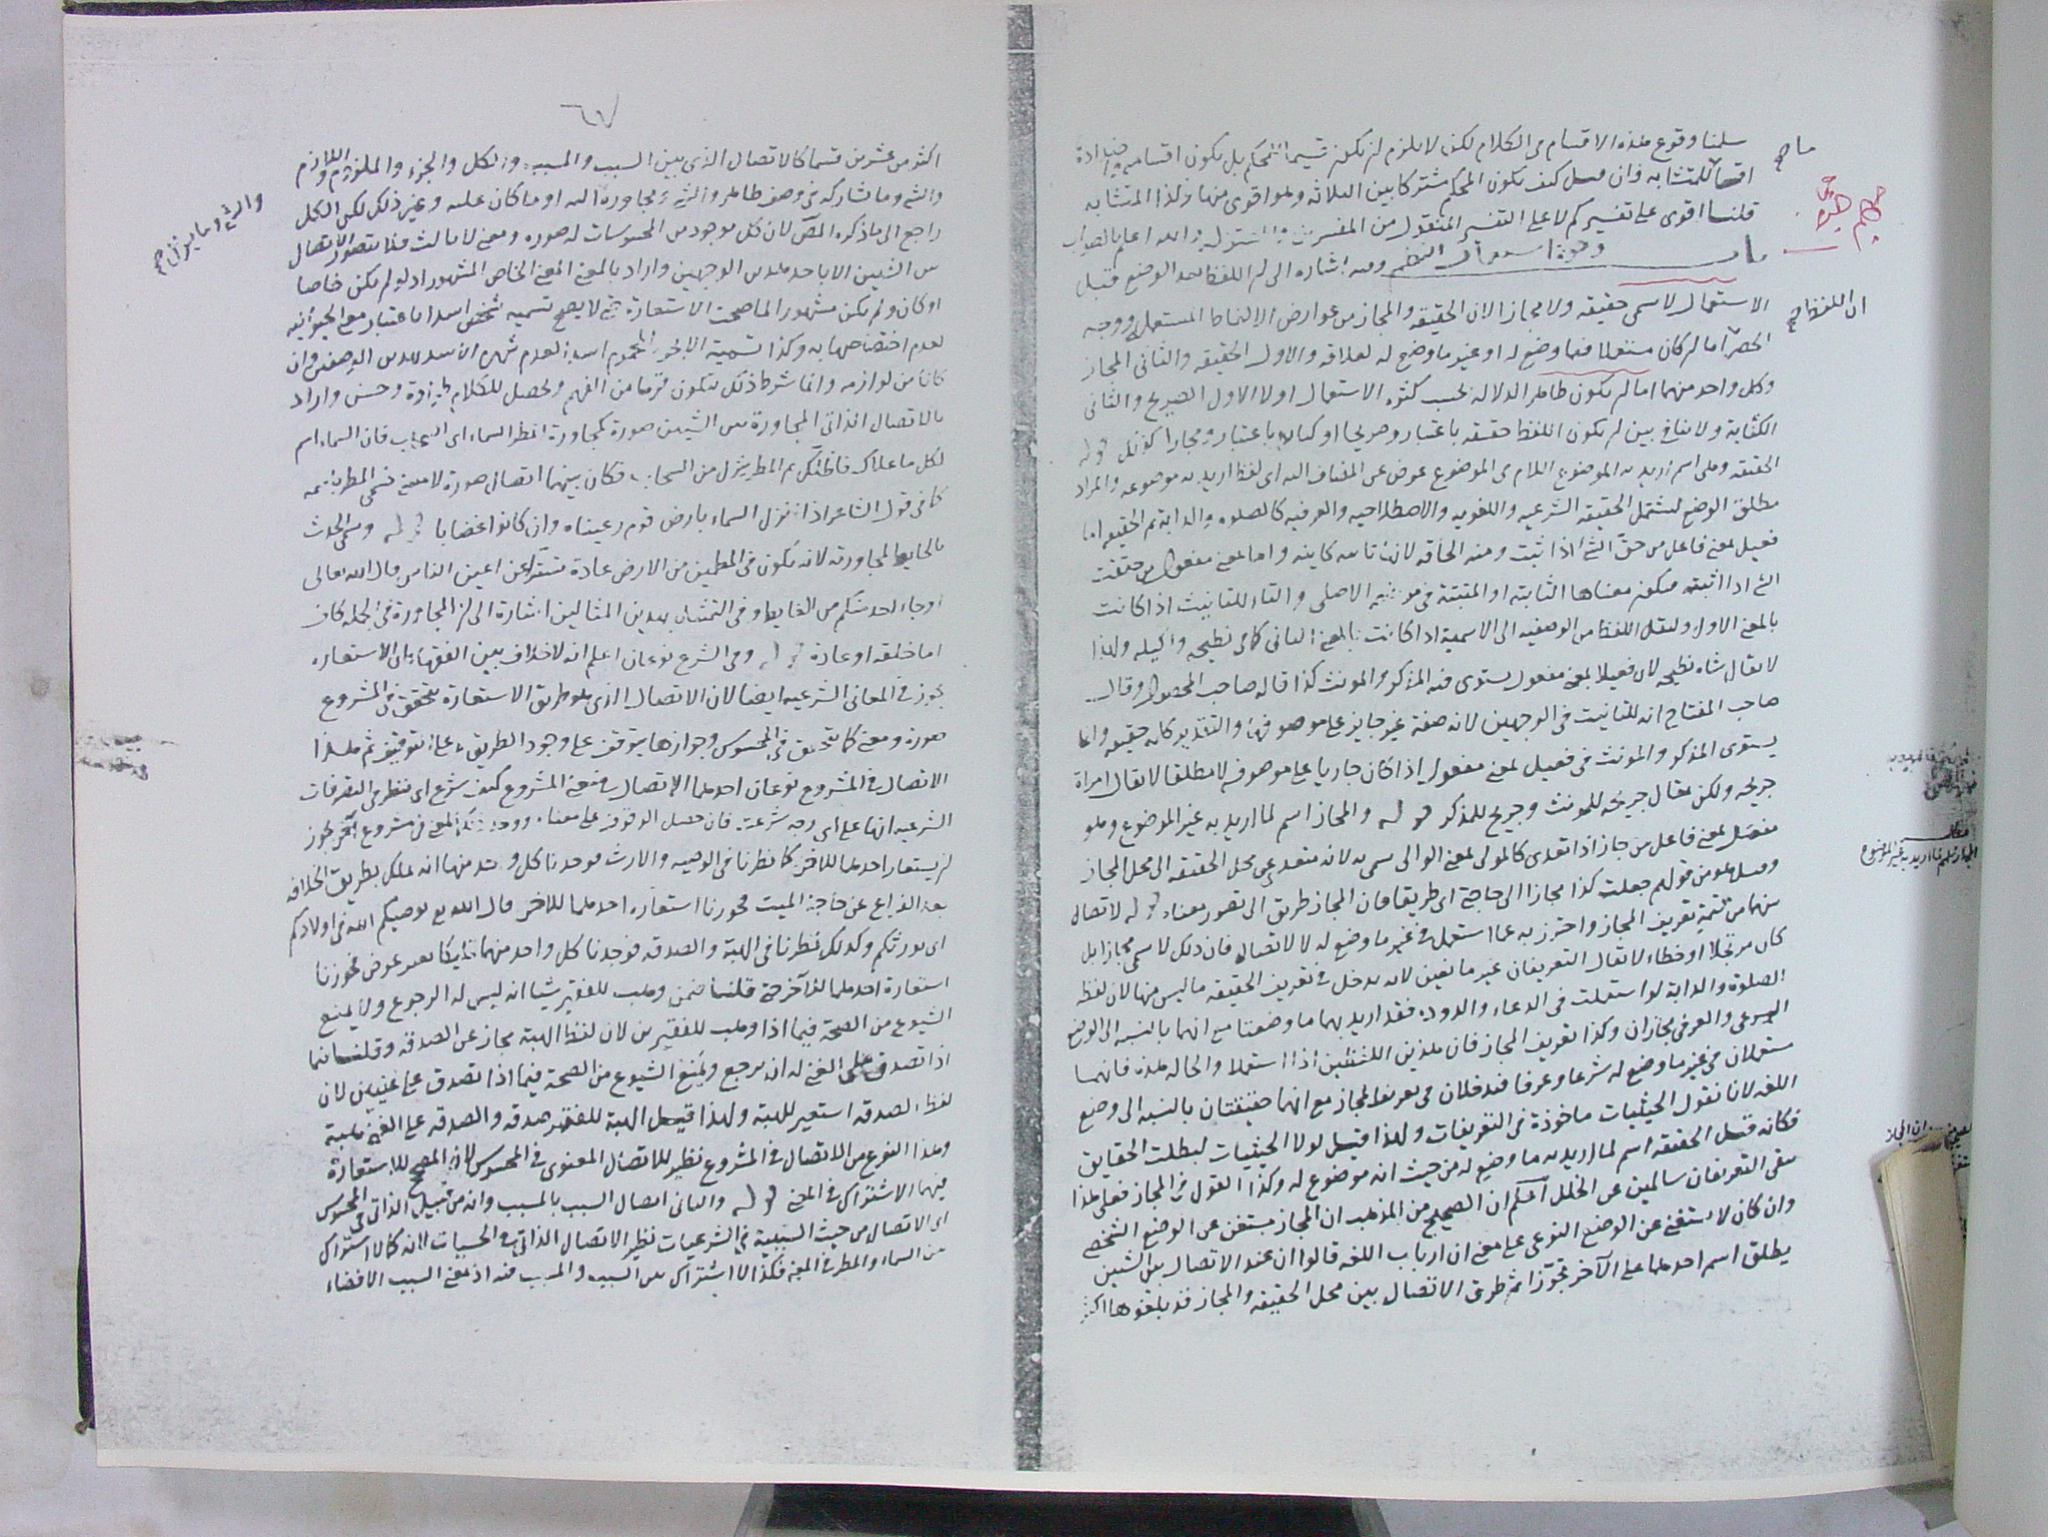 سلمنا وقوع هذه الاقسام في الكلام لكن لا يلزم ان يكون قسيما للمحكم بل يكون اقسامه
اقساما للمتشابه فان قيل كيف يكون المحكم مشتركا بين الثلاثة وهو اقوى منها وكذا المتشابه
قلنا اقوى على تفسيركم لا على التفسير المنقول من المفسرين والله اعلم بالصواب
باب وجوه استعمال النظم وفيه اشارة الى ان اللفظ بعد الوضع قبل
الاستعمال لا يسمى حقيقه ولا مجازا لان الحقيقه والمجاز من عوارض الالفاظ المستعملة ووجه
الحصر اما ان كان مستعملا فيما وضع له او غير ما وضع له لعلاقه والاول الحقيقه والثاني المجاز
وكل واحد منهما اما ان يكون ظاهر الدلاله بحسب كثره الاستعمال اولا الاول الصريح والثاني
الكناية ولا تنافي بين ان يكون اللفظ حقيقه باعتبار ومجازا قوله
الحقيقه وهي اسم اريد به الموضوع اللام في الموضوع عوض عن المضاف اليه اي لفظ اريد به موضوعه والمراد
مطلق الوضع ليشتمل الحقيقه الشرعيه واللغويه والاصطلاحيه والعرفيه كالصلوه والدابة ثم الحقيقه اما
فعيل بمعنى فاعل من حق الشئ اذا ثبت ومنه الحاقه لانها ثابته كاينه واما بمعنى مفعول من حققت
الشئ اذا اثبته فيكون معناها الثابته او المثبتة في موضعها الاصلي والتاء للتانيث اذا كانت
بالمعنى الاول ولنقل اللفظ من الوصفيه الى الاسمية اذا كانت بالمعنى الثاني كما في نطيحه واكيله ولهذا
لا يقال شاه نطيحه لان فعيلا بمعنى مفعول يستوى فيه المذكر والمونث كذا قاله صاحب المحصول وقال
صاحب المفتاح انه للتانيث في الوجهين لانه صفة غير جاريه على موصوفها والتقدير كلمه حقيقه وانما
يستوى المذكر والمونث في فعيل بمعنى مفعول اذا كان جاريا على موصوفه لا مطلقا لا يقال امراة
جريحه ولكن يقال جريحه للمونث وجريح للمذكر قوله والمجاز اسم لما اريد به غير الموضوع وهو
مفعل بمعنى فاعل من جاز اذا تعدى كالمولى بمعنى الوالى سمى به لانه متعد عن محل الحقيقه الى محل المجاز
وقيل هو من قولهم جعلت كذا مجازا الى حاجتى اي طريقا فان المجاز طريق الى تصور معناه قوله لاتصال
بينهما من تتمة تعريف المجاز واحترز به عما استعمل في غير ما وضع له لا لاتصال فان ذلك لا يسمى مجازا بل
كان مرتجلا او خطاء لا يقال التعريفان غير مانعين لانه يدخل في تعريف الحقيقه ما ليس منها لان لفظ
الصلوة والدابة لو استعملت في الدعاء والدود فقد اريد بهما ما وضعتا مع انهما بالنسبه الى الوضع
الشرعي والعرفي مجازان وكذا تعريف المجاز فان هذين اللفظين اذا استعملا والحاله هذه فانهما
مستعملان في غير ما وضع له شرعا وعرفا فيدخلان في تعريف المجاز مع انهما حقيقتان بالنسبه الى وضع
اللغه لانا نقول الحيثيات ماخوذة في التعريفات ولهذا قيل لولا الحيثيات لبطلت الحقايق
فكانه قيل الحقيقه اسم لما اريد به ما وضع له من حيث انه موضوع له وكذا القول في المجاز فعلى هذا
يبقى التعريفان سالمين عن الخلل اعلم ان الصحيح من المذهب ان المجاز مستغن عن الوضع الشخصي
وان كان لا يستغنى عن الوضع النوعي على معنى ان ارباب اللغه قالوا ان عند الاتصال بين الشيئين
يطلق اسم احدهما على الآخر تجوزا ثم طرق الاتصال بين محل الحقيقه والمجاز قد بلغوها
ان اللفظ صح
٦٧
اكثر من عشرين قسما كالاتصال الذي بين السبب والمسبب والكل والجزء والملزوم واللازم
والشئ وما شاركه في وصف ظاهر والشئ ومجاورة اليه او ما كان عليه وغير ذلك لكن الكل
راجع الى ما ذكره المص لان كل موجود من المحسوسات له صوره ومعنى لا ثالث فلا يتصور الاتصال
بين الشيئين الا باحد هذين الوجهين واراد بالمعنى المعنى الخاص المشهور اذ لو لم يكن خاصا
او كان ولم يكن مشهورا لما صحت الاستعارة حتى لا يصح تسميه شخص اسدا باعتبار معنى الحيوانيه
لعدم اختصاصها به وكذا تسمية الابخر المحموم اسدا لعدم شهرة الاسد بهذين الوصفين وان
كانا من لوازمه وانما شرط ذلك ليكون قريبا من الفهم ويحصل للكلام زيادة وحسن واراد
بالاتصال الذاتي المجاورة بين الشيئين صورة كمجاورة المطر السماء اي السحاب فان السماء اسم
لكل ما علاك فاظلك ثم المطر ينزل من السحاب فكان بينهما اتصال صورة لا معنى فسمى المطر باسمه
كما في قول الشاعر اذا نزل السماء بارض قوم رعيناه وان كانوا غضابا قوله وسمى الحدث
بالغايط لمجاورته لانه يكون في المطمين من الارض عادة تسترا عن اعين الناس قال الله تعالى
او جاء احد منكم من الغايط وفي التمثيل بهذين المثالين اشارة الى ان المجاورة في الجمله كاف
اما خلقه او عادة قوله وفي الشرع نوعان اعلم انه لا خلاف بين الفقهاء ان الاستعاره
تجوز في المعانى الشرعيه ايضا لان الاتصال الذي هو طريق الاستعارة يتحقق في المشروع
صورة ومعنى كما يتحقق في المحسوس وجوازها يتوقف على وجود الطريق لا على التوقيف ثم هذا
الاتصال في المشروع نوعان احدهما الاتصال في معنى المشروع كيف شرع اي ننظر في التصرفات
الشرعيه انها على اي وجه شرعت فان حصل الوقوف على معناه ووجد ذلك المعنى في مشروع آخر يجوز
ان يستعار احدهما للآخر كما نظرنا في الوصيه والارث فوجدنا كل واحد منهما انه تملك بطريق الخلافه
بعد الفراغ عن حاجة الميت فجوزنا استعاره احدهما للآخر قال الله تع يوصيكم الله في اولادكم
اي يورثكم وكذلك نظرنا في الهبة والصدقه فوجدنا كل واحد منهما تمليكا بغير عوض فجوزنا
استعارة احدهما للآخر حتى قلنا فيمن وهب للفقير شيا انه ليس له الرجوع ولا يمنع
الشيوع من الصحة فيما اذا وهب للفقيرين لان لفظ الهبة مجاز عن الصدقه وقلنا فيما
اذا تصدق على الغني له ان يرجع ويمنع الشيوع من الصحة فيما اذا تصدق على غنيين لان
لفظ الصدقه استعير للهبة ولهذا قيل الهبة للفقير صدقه والصدقه على الغني هبة
وهذا النوع من الاتصال في المشروع نظير للاتصال المعنوى في المحسوس لان المصحح للاستعارة
فيهما الاشتراك في المعنى قوله والثاني اتصال السبب بالمسبب وانه من قبيل الذاتي في المحسوس
اي الاتصال من حيث السببية في الشرعيات نظير الاتصال الذاتي في الحسيات لانه كما لا اشتراك
بين السماء والمطر في المعنى فكذا لا اشتراك بين السبب والمسبب فيه اذ معنى السبب الافضاء